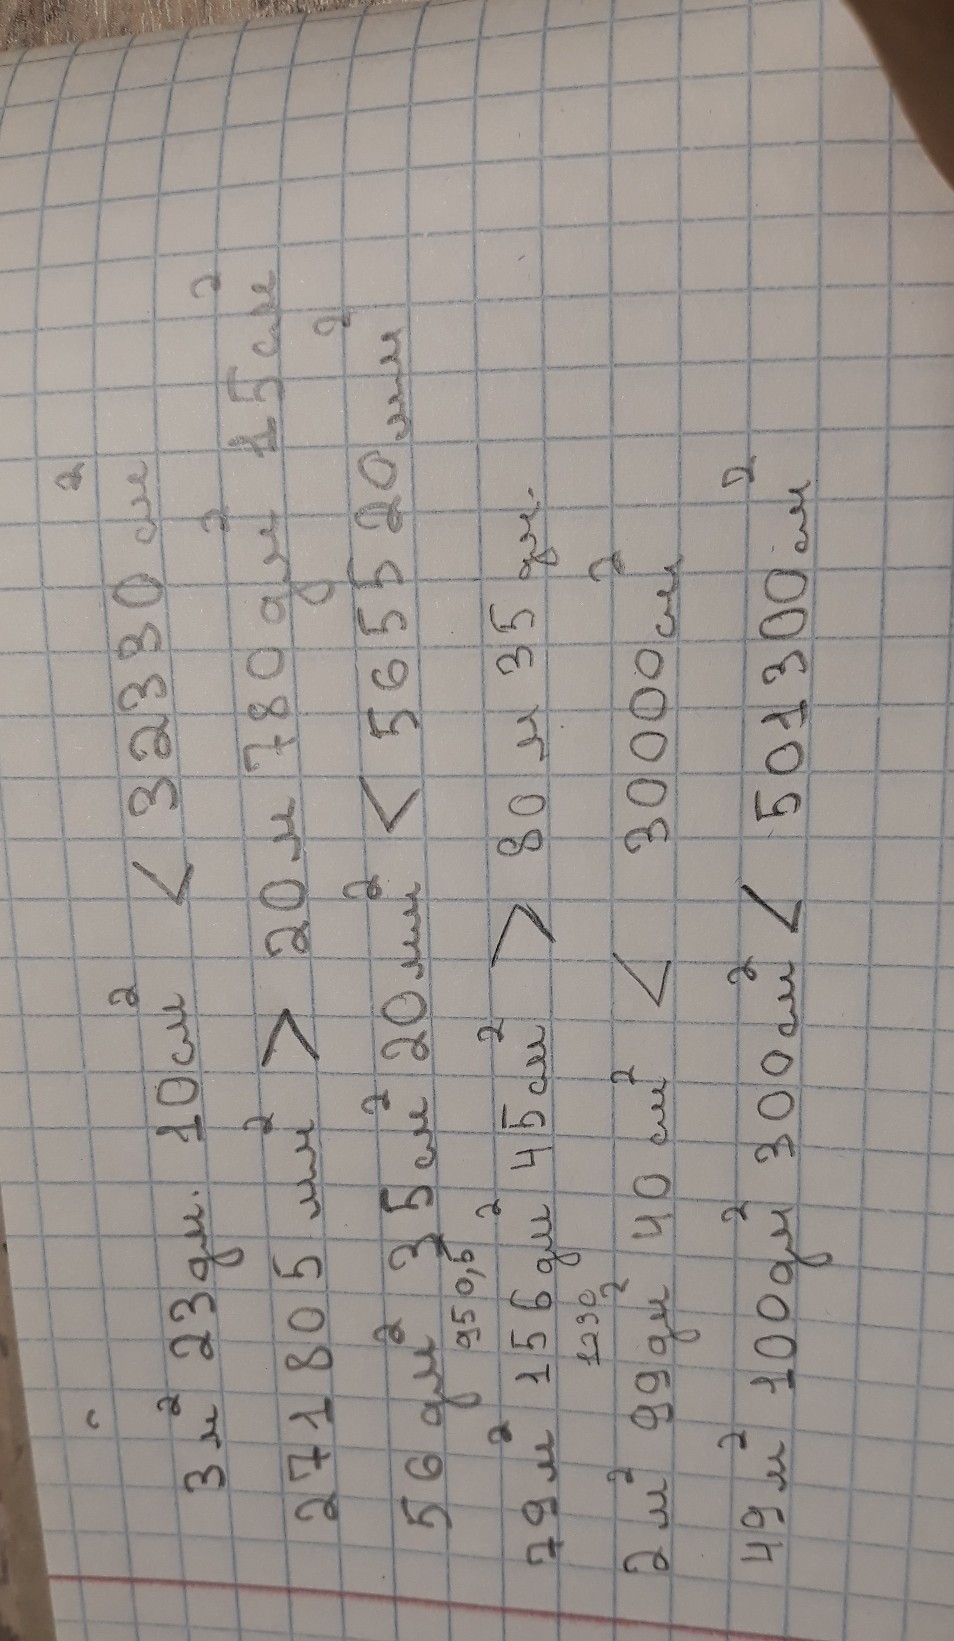 3 м² 23 дм. 10 см² < 32330 см²
271805 мм² > 20 м 780 дм² 15 см²
56 дм² 35 см² 20 мм² < 565520 мм²
950,5
79 м² 156 дм² 45 см² > 80 м 35 дм.
1230
2 м² 99 дм² 40 см² < 30000 см²
49 м² 100 дм² 300 см² < 501300 см²